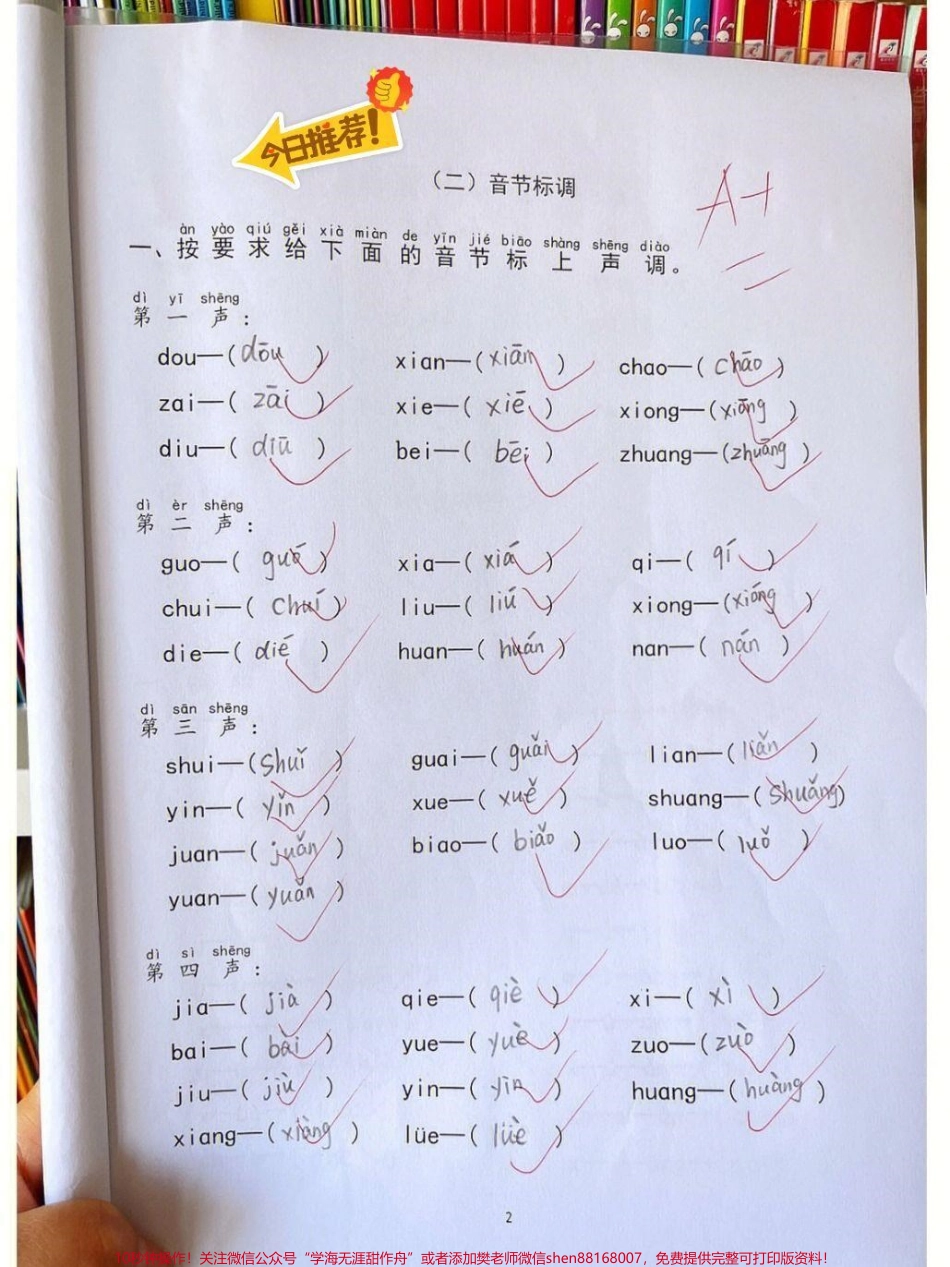 今日推荐!
(二)音节标调
A+
àn yào qiú gěi xià miàn de yīn jié biāo shàng shēng diào
一、按要求给下面的音节标上声调。
dì yī shēng
第一声:
dou—(dōu) xian—(xiān) chao—(chāo)
zai—(zāi) xie—(xiē) xiong—(xiōng)
diu—(diū) bei—(bēi) zhuang—(zhuāng)
dì èr shēng
第二声:
guo—(guó) xia—(xiá) qi—(qí)
chui—(chuí) liu—(liú) xiong—(xióng)
die—(dié) huan—(huán) nan—(nán)
dì sān shēng
第三声:
shui—(shuǐ) guai—(guǎi) lian—(liǎn)
yin—(yǐn) xue—(xuě) shuang—(shuǎng)
juan—(juǎn) biao—(biǎo) luo—(luǒ)
yuan—(yuǎn)
dì sì shēng
第四声:
jia—(jià) qie—(qiè) xi—(xì)
bai—(bài) yue—(yuè) zuo—(zuò)
jiu—(jiù) yin—(yìn) huang—(huàng)
xiang—(xiàng) lüe—(lüè)
2
关注微信公众号“学海无涯甜作舟”或者添加樊老师微信shen88168007，免费提供完整可打印版资料！